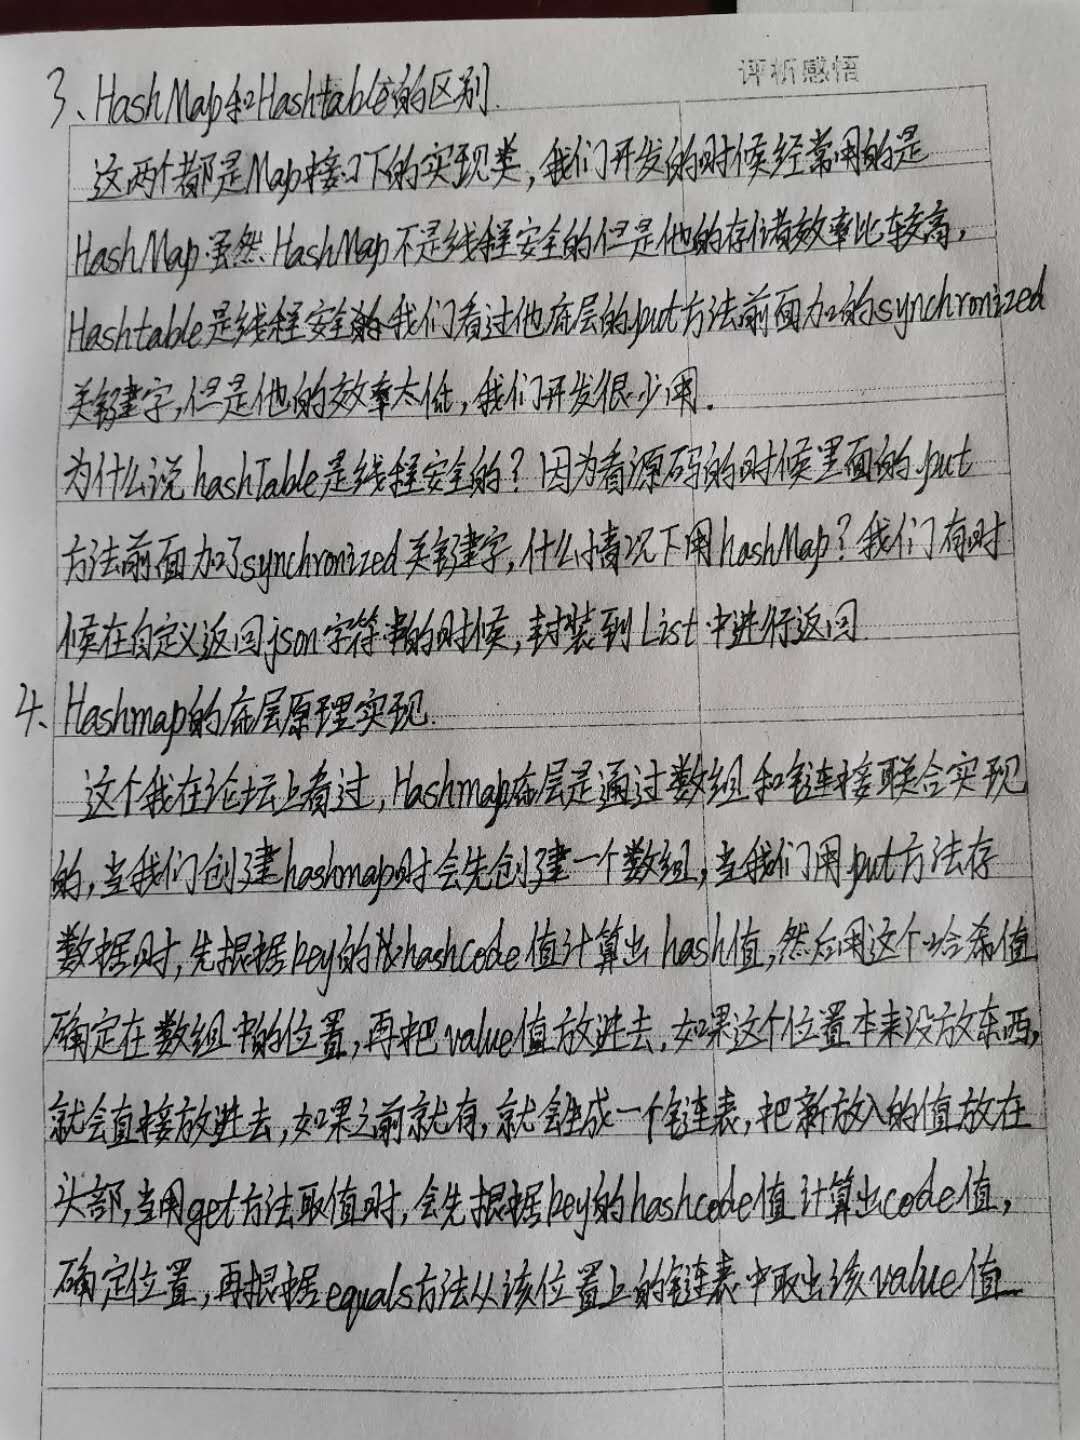 评析感悟
3、HashMap和Hashtable的区别.
这两个都是Map接口下的实现类,我们开发的时候经常用的是
HashMap.虽然HashMap不是线程安全的但是他的存储效率比较高,
Hashtable是线程安全的我们看过他底层的put方法前面加的synchronized
关键字,但是他的效率太低,我们开发很少用.
为什么说hashTable是线程安全的?因为看源码的时候里面的put
方法前面加了synchronized关键字,什么情况下用hashMap?我们有时
候在自定义返回json字符串的时候,封装到List中进行返回
4、Hashmap的底层原理实现.
这个我在论坛上看过,Hashmap底层是通过数组和链接联合实现
的,当我们创建hashmap时会先创建一个数组,当我们用put方法存
数据时,先根据key的hashcode值计算出hash值,然后用这个哈希值
确定在数组中的位置,再把value值放进去,如果这个位置本来没放东西,
就会直接放进去,如果之前就有,就会生成一个链表,把新放入的值放在
头部,当用get方法取值时,会先根据key的hashcode值计算出code值,
确定位置,再根据equals方法从该位置上的链表中取出该value值